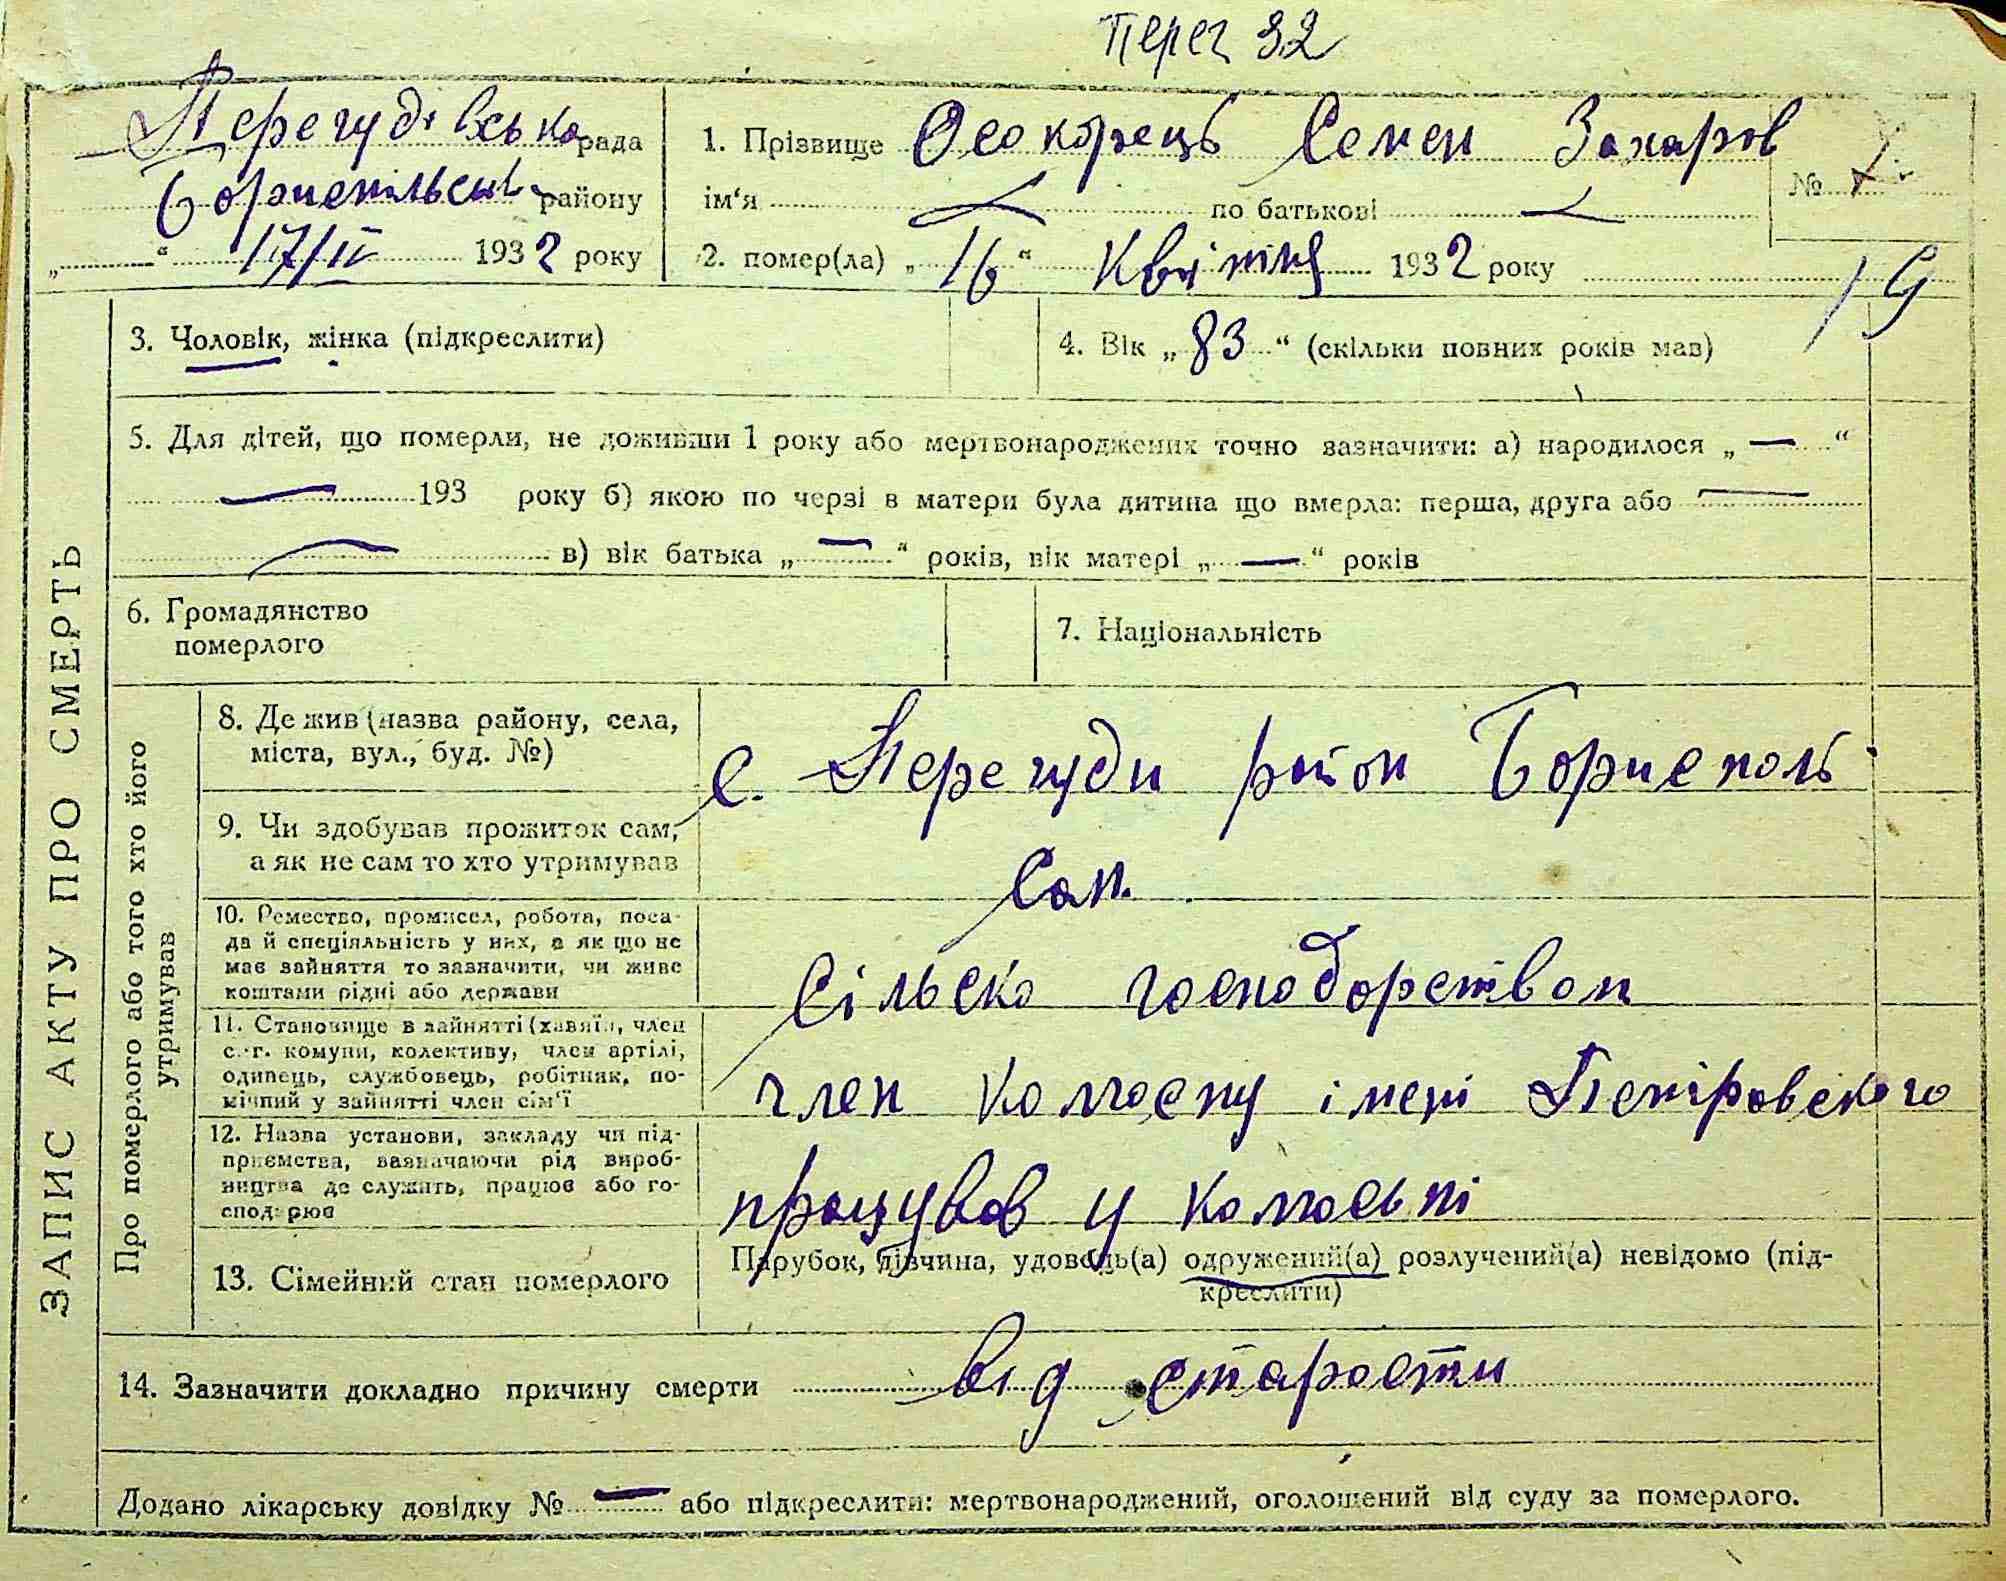 Перег 32
Перегудівська рада
Бориспільськ району
„ “ 17/IV 1932 року
1. Прізвище Осокорець Семен Захаров
ім‘я по батькові
№
2. помер(ла) „16“ Квітня 1932 року
19
3. Чоловік, жінка (підкреслити)
4. Вік „83“ (скільки повних років мав)
5. Для дітей, що померли, не доживши 1 року або мертвонароджених точно зазначити: а) народилося „—“
— 193 року б) якою по черзі в матери була дитина що вмерла: перша, друга або —
— в) вік батька „—“ років, вік матері „—“ років
6. Громадянство
померлого
7. Національність
ЗАПИС АКТУ ПРО СМЕРТЬ
Про померлого або того хто його
утримував
8. Де жив (назва району, села,
міста, вул., буд. №)
с. Перегуди район Бориспол
9. Чи здобував прожиток сам,
а як не сам то хто утримував
Сам.
10. Ремество, промисел, робота, поса-
да й спеціяльність у них, а як що не
має зайняття то зазначити, чи живе
коштами рідні або держави
Сільско господарством
11. Становище в зайнятті (хазяїн, член
с.-г. комуни, колективу, член артілі,
одинець, службовець, робітник, по-
мічний у зайнятті член сім‘ї
член колгоспу імені Петровского
12. Назва установи, закладу чи під-
приємства, зазначаючи рід вироб-
ництва де служить, працює або го-
сподарює
працував у колгоспі
13. Сімейний стан померлого
Парубок, дівчина, удовець(а) одружений(а) розлучений(а) невідомо (під-
креслити)
14. Зазначити докладно причину смерти від старости
Додано лікарську довідку № — або підкреслити: мертвонароджений, оголошений від суду за померлого.